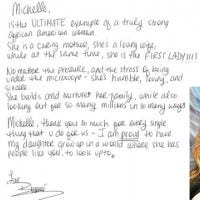 Michelle,
is the ULTIMATE example of a truly strong
african american woman.
She is a caring mother, she's a loving wife,
while at the same time, she is the FIRST LADY!!!!
No matter the pressure, and the stress of being
under the microscope - she's humble, loving, and
sincere.
She builds and nurtures her family, while also
looking out for so many millions in so many ways
Michelle, thank you so much for every single
thing that u do for us - I am proud to have
my daughter grow up in a world where she has
people like you, to look up to.
Love